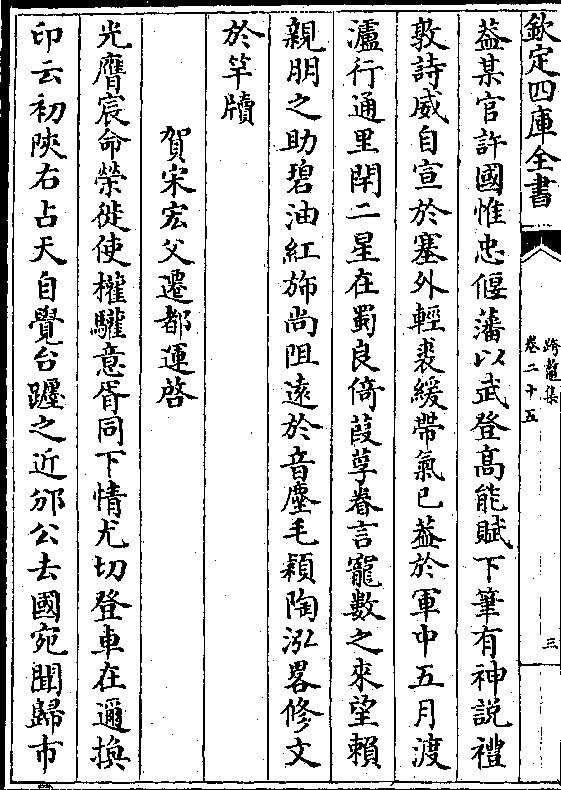 欽定四庫全書
跨鼇集
卷二十五
三
葢某官許國惟忠偃藩以武登髙能賦下筆有神説禮
敦詩威自宣於塞外輕裘緩帶氣已葢於軍中五月渡
瀘行通里閈二星在蜀良倚葭莩眷言寵數之來望賴
親朋之助碧油紅斾尚阻遠於音塵毛穎陶泓畧修文
於竿牘
賀宋宏父遷都運啓
光膺宸命榮徙使權驩意胥同下情尤切登車在邇換
印云初陜右占天自覺台躔之近邠公去國宛聞歸市